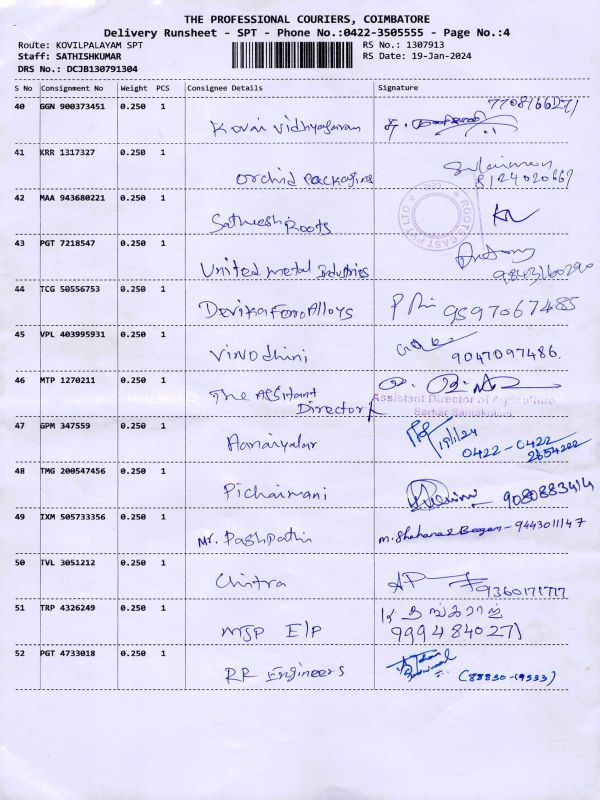 THE PROFESSIONAL COURIERS, COIMBATORE
Delivery Runsheet - SPT - Phone No.:0422-3505555 - Page No.:4
Route: KOVILPALAYAM SPT RS No.: 1307913
Staff: SATHISHKUMAR RS Date: 19-Jan-2024
DRS No.: DCJB130791304
S No Consignment No Weight PCS Consignee Details Signature
40 GGN 900373451 0.250 1
Kovai Vidhyasram
41 KRR 1317327 0.250 1
Orchid Packaging
8124020667
42 MAA 943680221 0.250 1
Satheesh Roots
ROOTS CAST PVT LTD
43 PGT 7218547 0.250 1
United Metal Industries
9843160290
44 TCG 50556753 0.250 1
Devika Ferro Alloys 9597067485
45 VPL 403995931 0.250 1
Vinodhini 9047097486.
46 MTP 1270211 0.250 1
The Assistant
Director
Assistant Director of Agriculture
Sarkar Samakulam
47 GPM 347559 0.250 1
19/1/24
0422-0422
2654222
48 TMG 200547456 0.250 1
Pichaimani 9080883414
49 IXM 505733356 0.250 1
Mr. Pashpathi m. Shahanaz Beegan - 9443011147
50 TVL 3051212 0.250 1
Chitra AP 9360171717
51 TRP 4326249 0.250 1
MJP E/P
999484027)
52 PGT 4733018 0.250 1
RR Engineers (88830-19333)